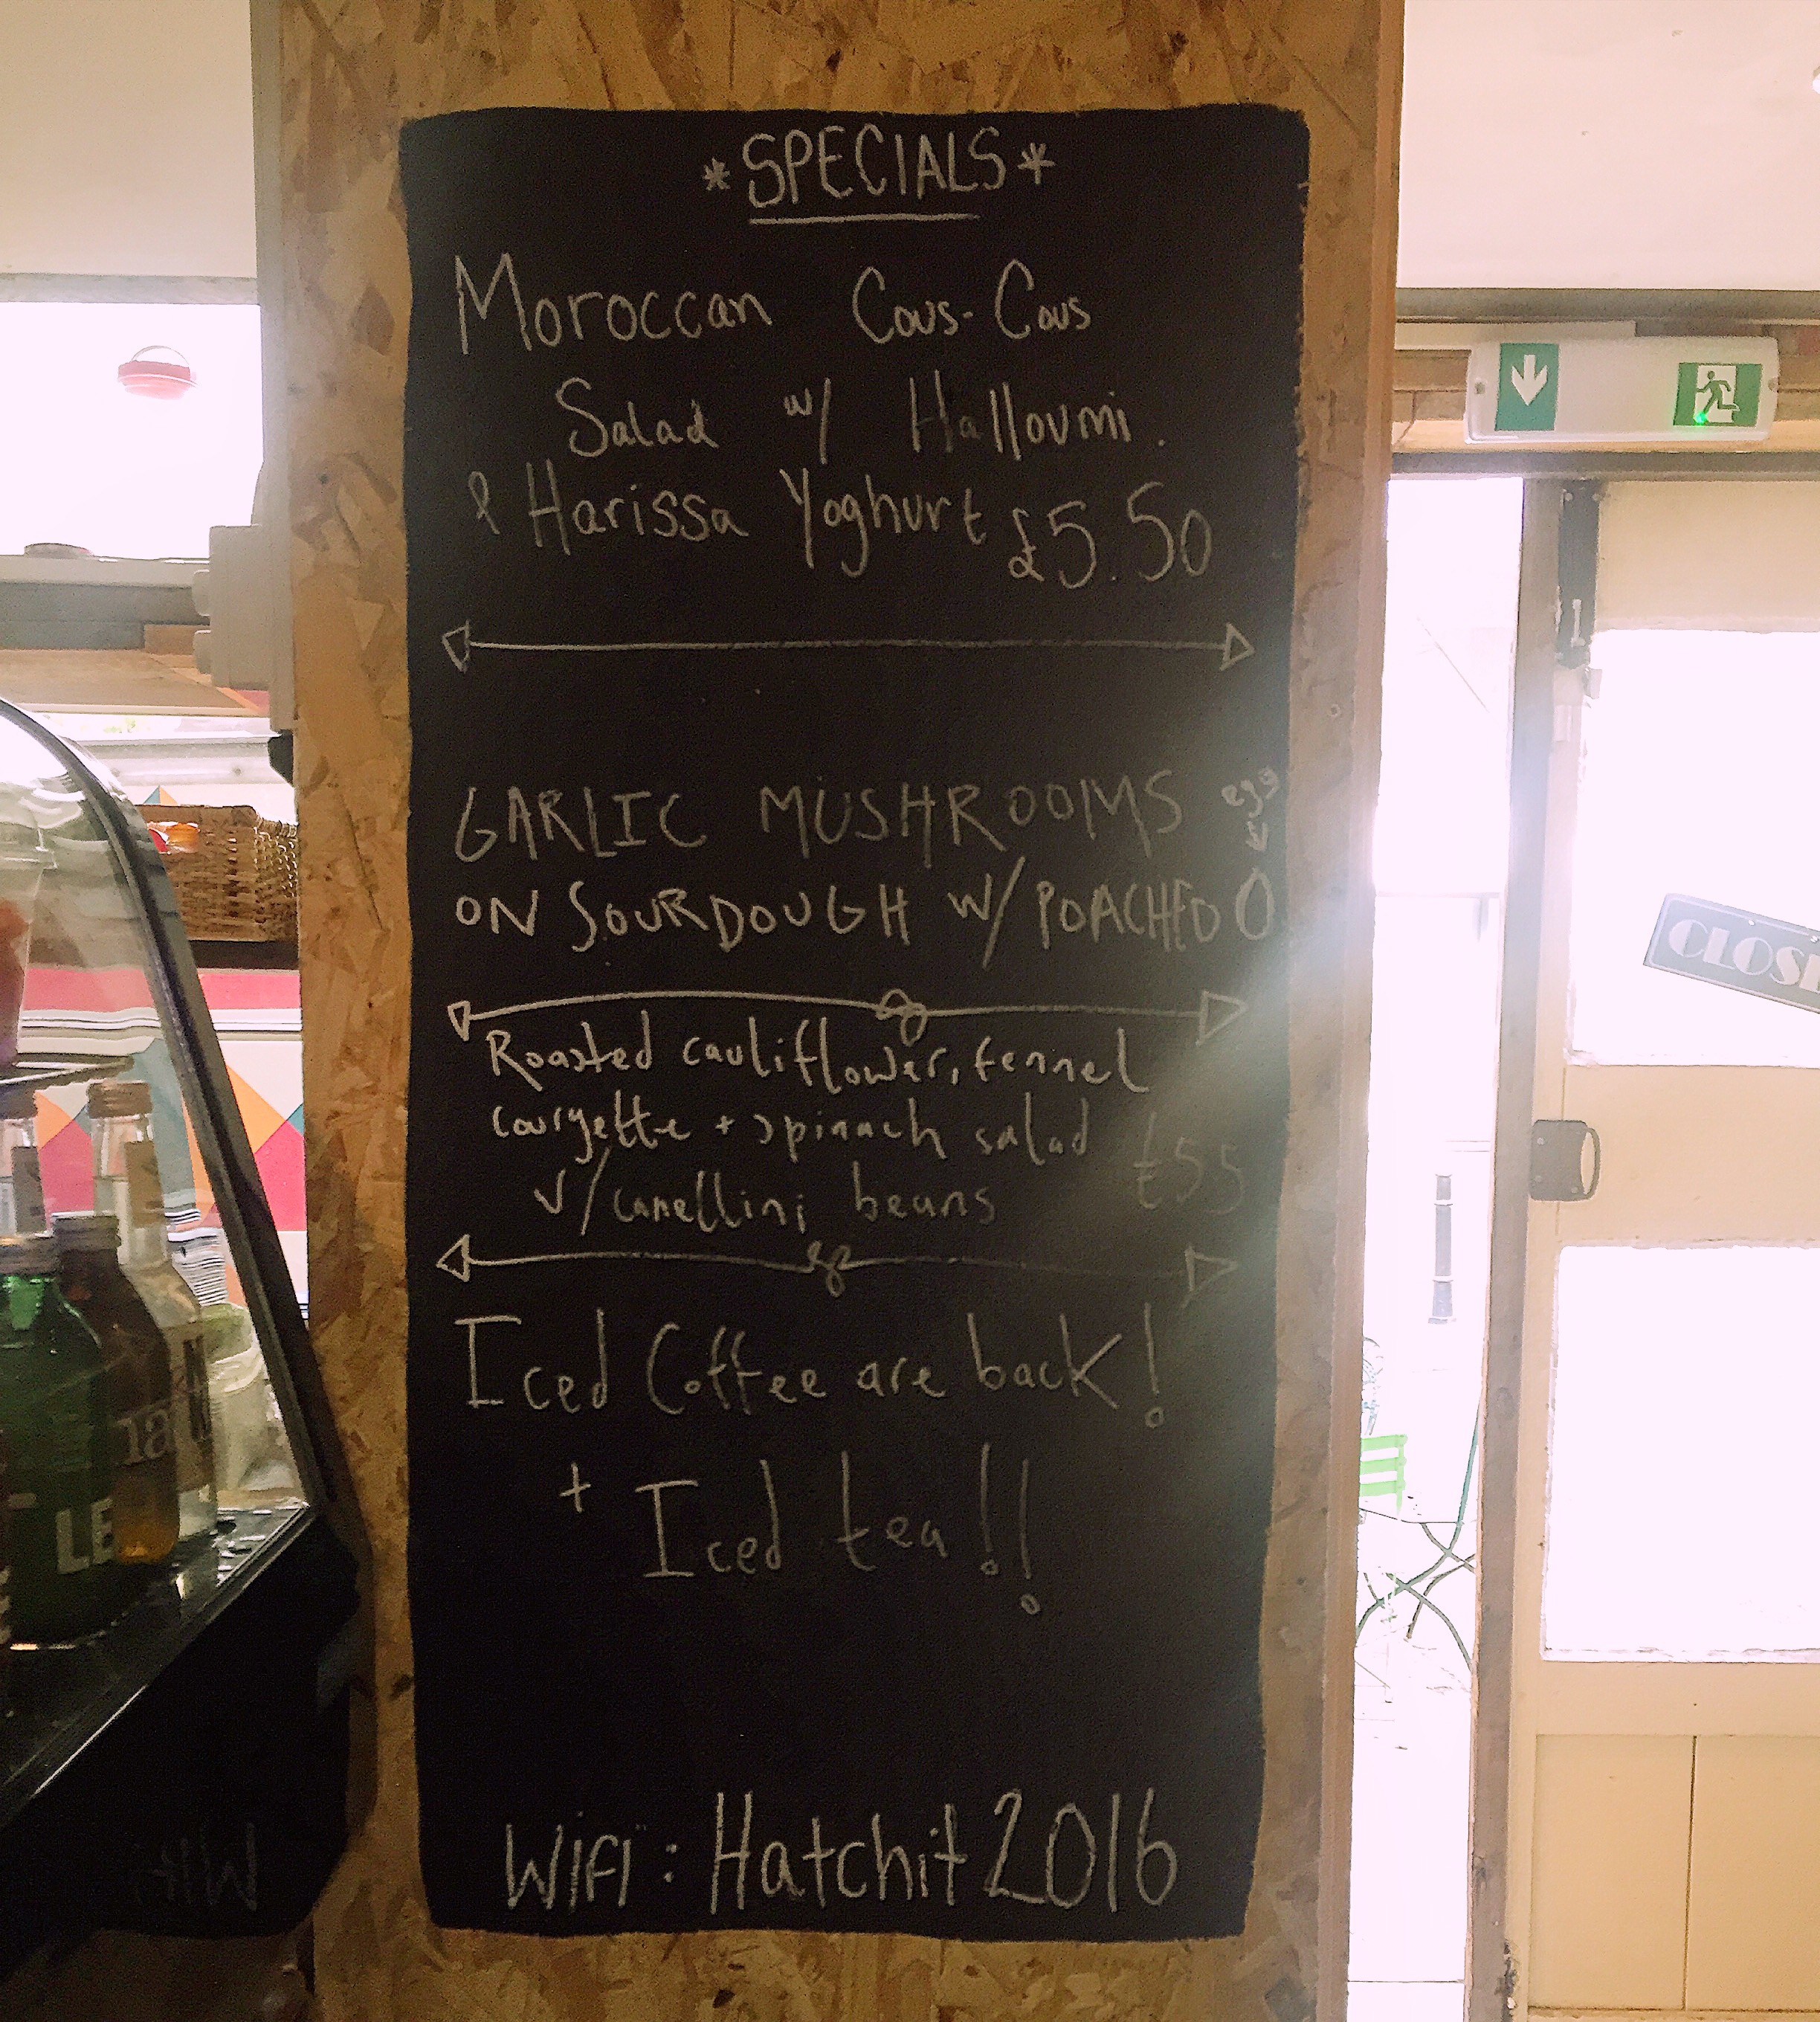 *SPECIALS*
Moroccan Cous-Cous
Salad w/ Halloumi.
& Harissa Yoghurt £5.50
egg
GARLIC MUSHROOMS
ON SOURDOUGH W/ POACHED
Roasted cauliflower, fennel
courgette + spinach salad
w/ canellini beans £55
Iced Coffee are back!
+ Iced tea!!
Wifi: Hatchit2016
CLOSE
LE